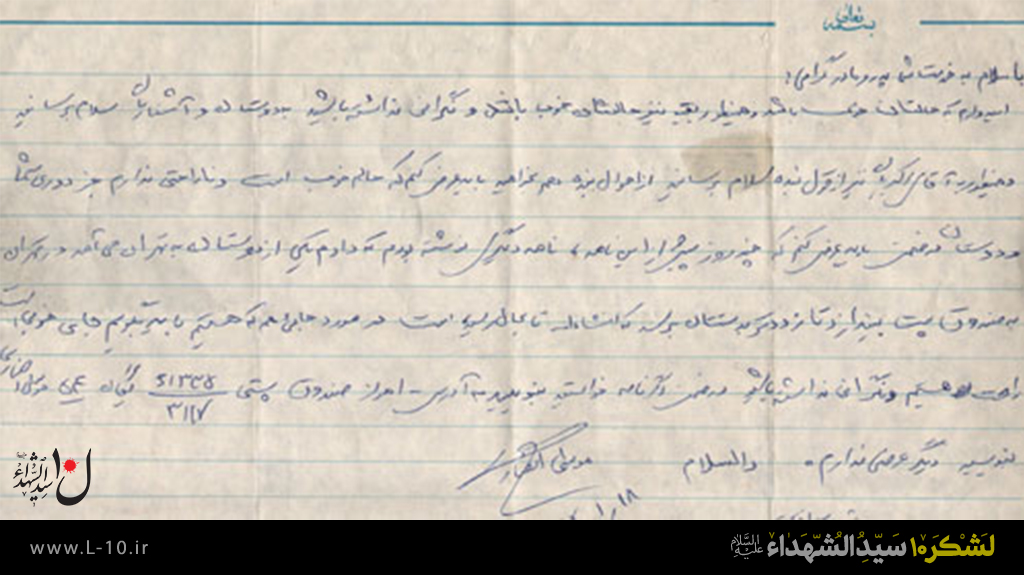 بسمه تعالی
با سلام به خدمتتان پدر و مادر گرامی؛
امیدوارم که حالتان خوب باشد و همینطور بقیه نیز حالشان خوب باشد و نگرانی نداشته باشید به دوستان و آشنایان سلام برسانید
و همینطور به آقای نیز از قول بنده سلام برسانید از احوال بنده هم بخواهید باید عرض کنم که حالم خوب است و ناراحتی ندارم جز دوری شما
و دوستان در ضمن باید عرض کنم که چند روز پیش از این نامه، نامه دیگری نوشته بودم که دادم یکی از دوستان به تهران می‌آمد در تهران
به صندوق پست بیندازد تا زودتر به دستتان برسد که انشاءالله تا بحال رسیده است در مورد جایی هم که هستیم باید بگویم جای خوبی است
راحت هستیم و نگرانی نداشته باشید در ضمن اگر نامه خواستید بنویسید به آدرس - اهواز صندوق پستی ۶۱۳۳۵/۳۱۱۷ گردان
بنویسید دیگر عرضی ندارم. والسلام موسی
۱/۱۸
ل۱۰ سیدالشهداء
www.L-10.ir
لشکر۱۰ سیدالشهداء علیه السلام